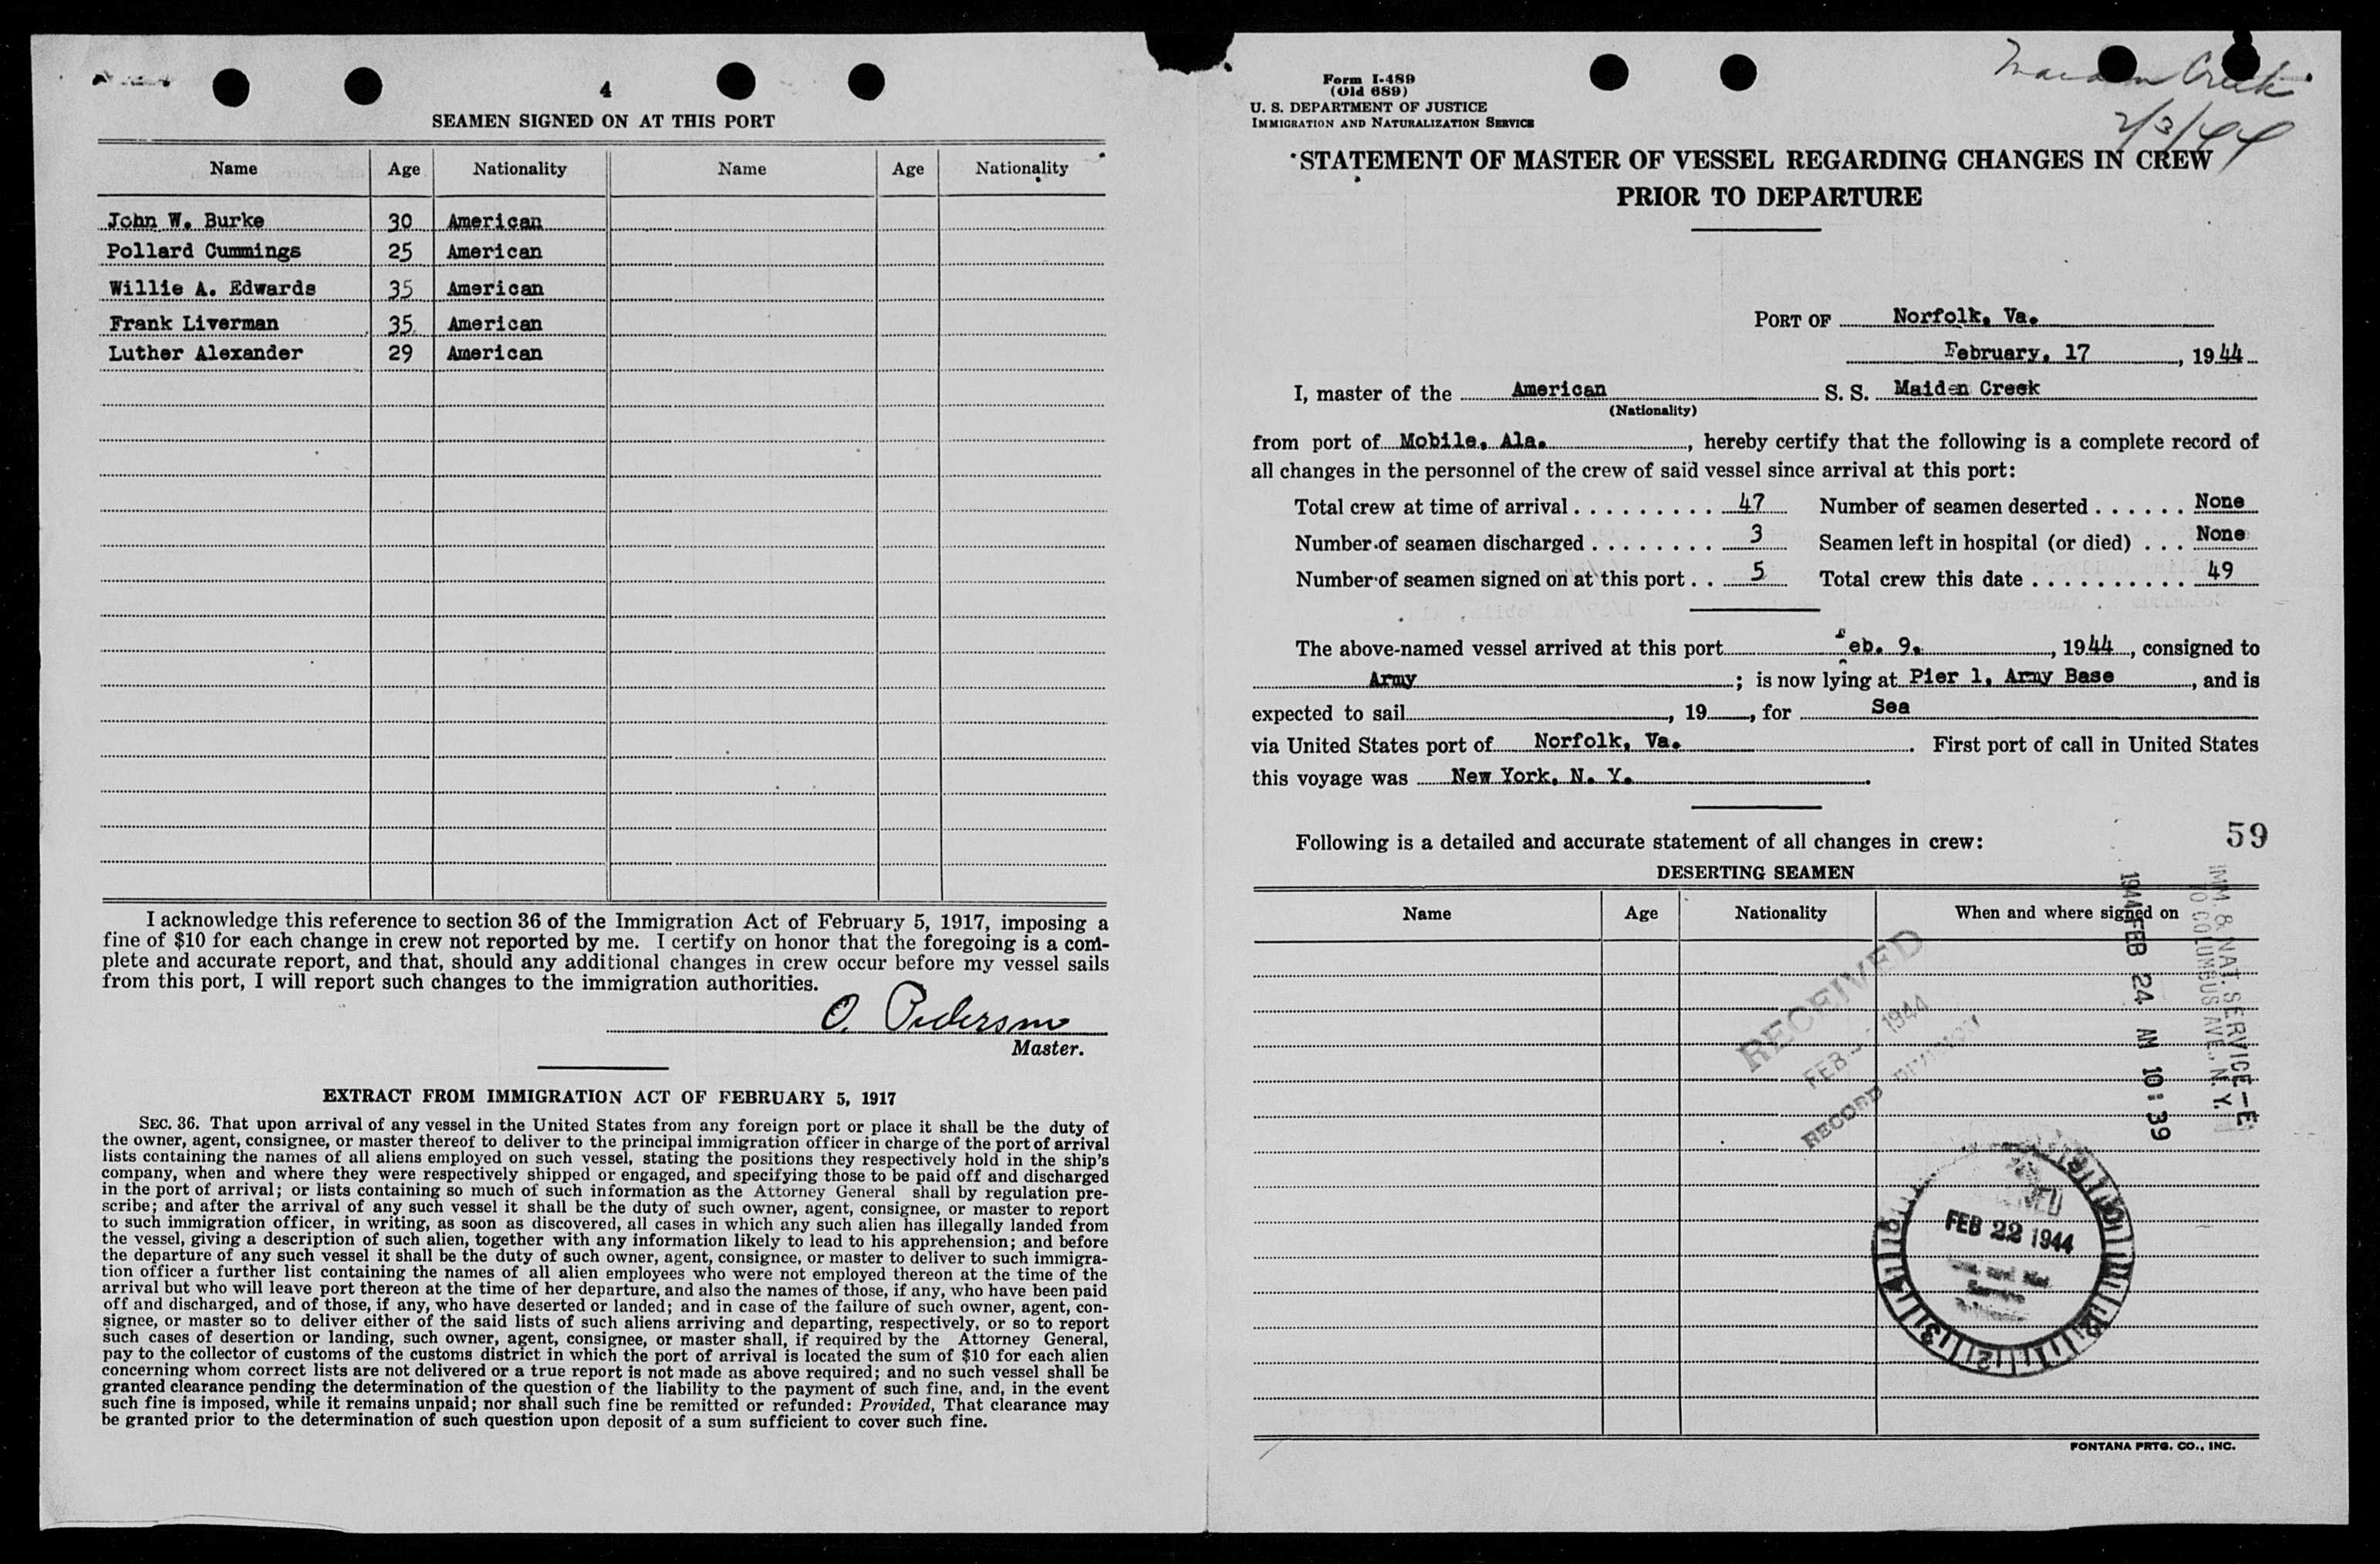 4
SEAMEN SIGNED ON AT THIS PORT
Name Age Nationality Name Age Nationality
John W. Burke 30 American
Pollard Cummings 25 American
Willie A. Edwards 35 American
Frank Liverman 35 American
Luther Alexander 29 American
I acknowledge this reference to section 36 of the Immigration Act of February 5, 1917, imposing a
fine of $10 for each change in crew not reported by me. I certify on honor that the foregoing is a com-
plete and accurate report, and that, should any additional changes in crew occur before my vessel sails
from this port, I will report such changes to the immigration authorities.
O. Pedersen
Master.
EXTRACT FROM IMMIGRATION ACT OF FEBRUARY 5, 1917
SEC. 36. That upon arrival of any vessel in the United States from any foreign port or place it shall be the duty of
the owner, agent, consignee, or master thereof to deliver to the principal immigration officer in charge of the port of arrival
lists containing the names of all aliens employed on such vessel, stating the positions they respectively hold in the ship's
company, when and where they were respectively shipped or engaged, and specifying those to be paid off and discharged
in the port of arrival; or lists containing so much of such information as the Attorney General shall by regulation pre-
scribe; and after the arrival of any such vessel it shall be the duty of such owner, agent, consignee, or master to report
to such immigration officer, in writing, as soon as discovered, all cases in which any such alien has illegally landed from
the vessel, giving a description of such alien, together with any information likely to lead to his apprehension; and before
the departure of any such vessel it shall be the duty of such owner, agent, consignee, or master to deliver to such immigra-
tion officer a further list containing the names of all alien employees who were not employed thereon at the time of the
arrival but who will leave port thereon at the time of her departure, and also the names of those, if any, who have been paid
off and discharged, and of those, if any, who have deserted or landed; and in case of the failure of such owner, agent, con-
signee, or master so to deliver either of the said lists of such aliens arriving and departing, respectively, or so to report
such cases of desertion or landing, such owner, agent, consignee, or master shall, if required by the Attorney General,
pay to the collector of customs of the customs district in which the port of arrival is located the sum of $10 for each alien
concerning whom correct lists are not delivered or a true report is not made as above required; and no such vessel shall be
granted clearance pending the determination of the question of the liability to the payment of such fine, and, in the event
such fine is imposed, while it remains unpaid; nor shall such fine be remitted or refunded: Provided, That clearance may
be granted prior to the determination of such question upon deposit of a sum sufficient to cover such fine.
Maiden Creek
2/3/44
Form I-489
(Old 689)
U. S. DEPARTMENT OF JUSTICE
IMMIGRATION AND NATURALIZATION SERVICE
STATEMENT OF MASTER OF VESSEL REGARDING CHANGES IN CREW
PRIOR TO DEPARTURE
PORT OF Norfolk, Va.
February, 17, 1944
I, master of the American S. S. Maiden Creek
(Nationality)
from port of Mobile, Ala., hereby certify that the following is a complete record of
all changes in the personnel of the crew of said vessel since arrival at this port:
Total crew at time of arrival 47 Number of seamen deserted None
Number of seamen discharged 3 Seamen left in hospital (or died) None
Number of seamen signed on at this port 5 Total crew this date 49
The above-named vessel arrived at this port Feb. 9, 1944, consigned to
Army; is now lying at Pier 1, Army Base, and is
expected to sail, 19, for Sea
via United States port of Norfolk, Va. First port of call in United States
this voyage was New York, N. Y.
Following is a detailed and accurate statement of all changes in crew:
59
DESERTING SEAMEN
Name Age Nationality When and where signed on
IMM. & NAT. SERVICE-E
70 COLUMBUS AVE., N. Y.
1944 FEB 24 AM 10:39
RECEIVED
FEB 1944
RECORD DIVISION
FEB 22 1944
FONTANA PRTG. CO., INC.